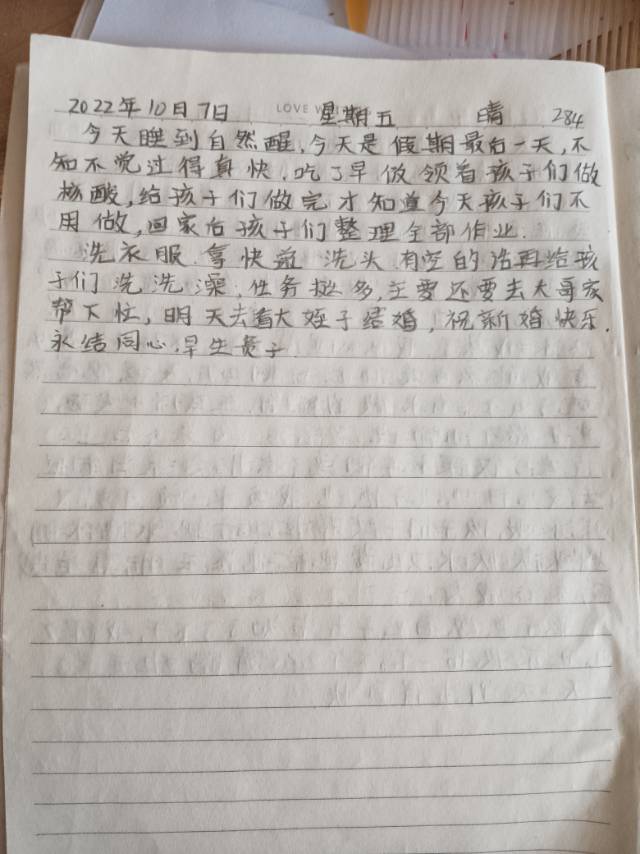 LOVE
2022年10月7日 星期五 晴 284
今天睡到自然醒,今天是假期最后一天,不
知不觉过得真快,吃了早饭领着孩子们做
核酸,给孩子们做完才知道今天孩子们不
用做,回家后孩子们整理全部作业.
洗衣服 拿快递 洗头 有空的话再给孩
子们洗洗澡,任务挺多,主要还要去大哥家
帮下忙,明天去看大侄子结婚,祝新婚快乐.
永结同心,早生贵子